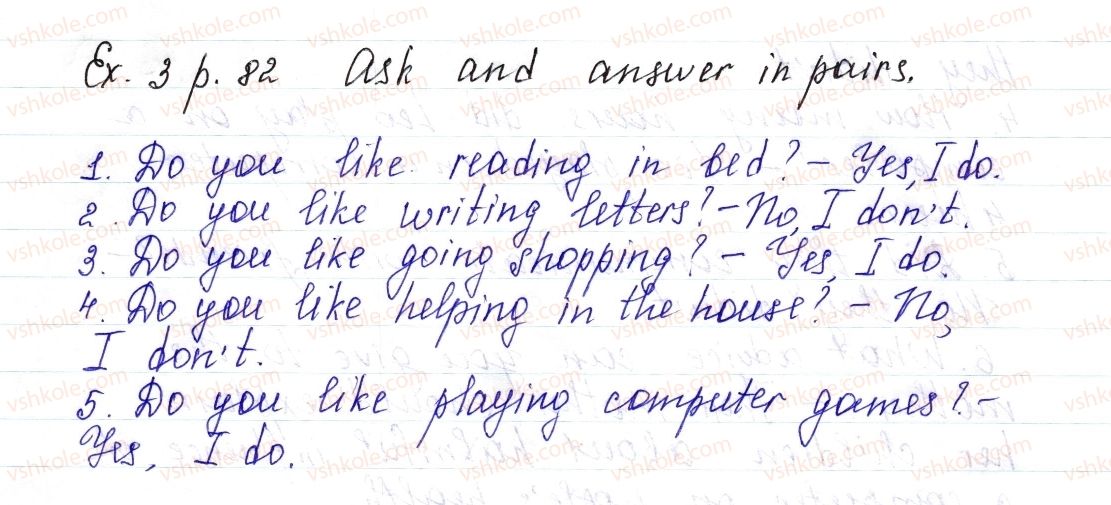 Ex. 3 p. 82 Ask and answer in pairs.
1. Do you like reading in bed? – Yes, I do.
2. Do you like writing letters? – No, I don't.
3. Do you like going shopping? – Yes, I do.
4. Do you like helping in the house? – No,
I don't.
5. Do you like playing computer games? –
Yes, I do.